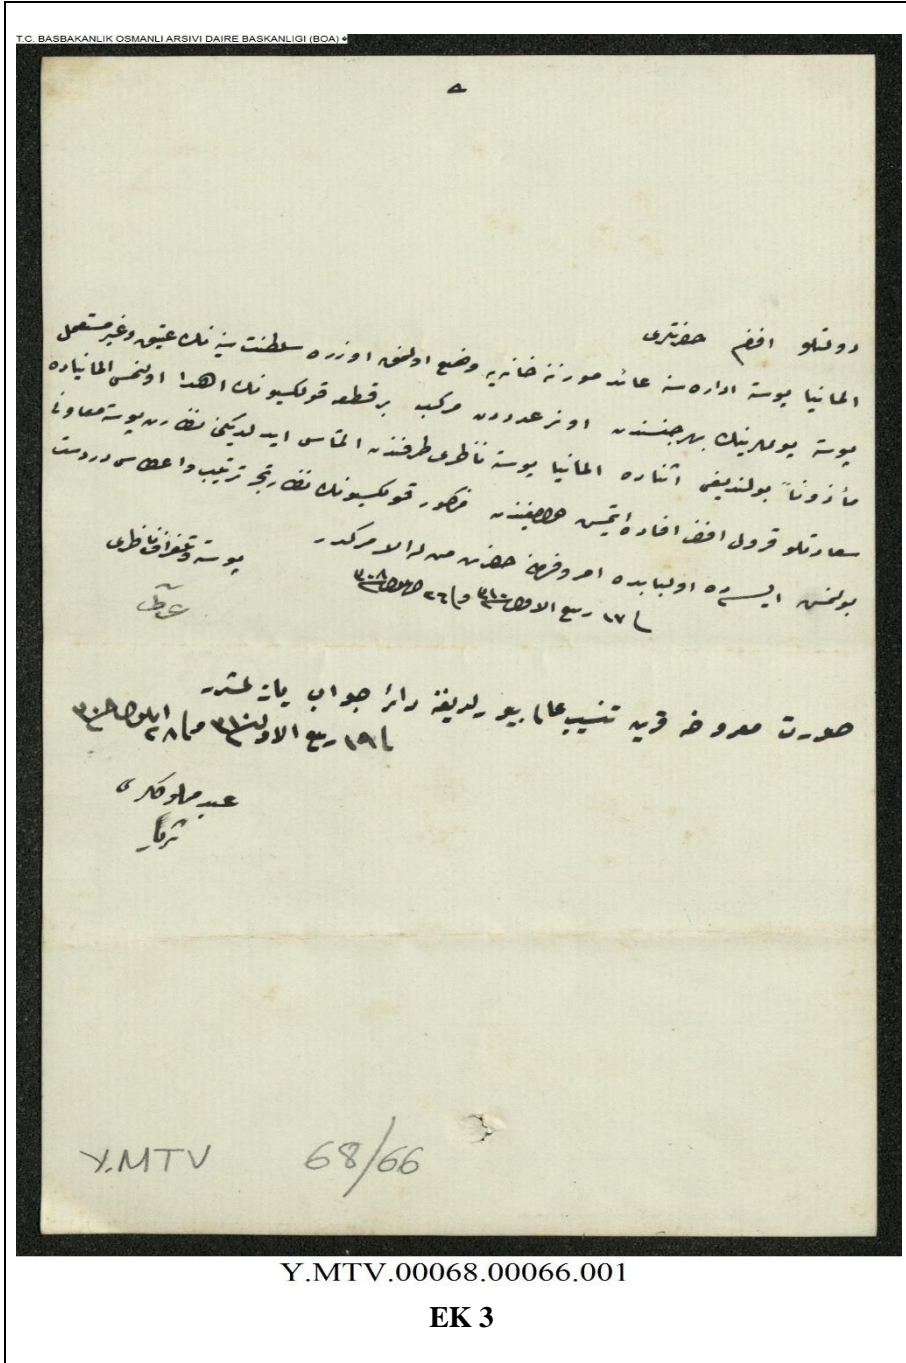 T.C. BASBAKANLIK OSMANLI ARSIVI DAIRE BASKANLIGI (BOA)
دولتلو افندم حضرتلری
المانیا پوسته اداره‌سنه عائد موزه‌خانه‌یه وضع اولنمق اوزره سلطنت سنیه‌نك عتیق و غیر مستعمل
پوسته پوللرینك بهر جنسندن اونر عدددن مركب بر قطعه قولكسیونك اهدا اولنمسی المانیاده
مأذوناً بولندیغی اثناده المانیا پوسته ناظری طرفندن التماس ایدلدیكنی نظارت پوسته معاونی
سعادتلو افندی افاده ایتمش مذكور قولكسیونك نظارتجه ترتیب و اعطاسی در دست
بولنمش ایسه‌ده اولبابده امر و فرمان حضرت من له الامركدر
١٧ ربیع الاول ٣١٠ و ٢٦ ایلول ٣٠٨
پوسته و تلغراف ناظری
صورت معروضه قرین تنسیب عالی بیورلدیغنه دائر جواب یازلمشدر
١٩ ربیع الاول ٣١٠ و ٢٨ ایلول ٣٠٨
عبد مملوكلری
ثریا
Y.MTV 68/66
Y.MTV.00068.00066.001
EK 3